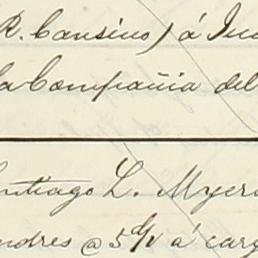 R. Cansino) á
la Compañia del
Santiago L. Myers
Londres @ 5 d/v á carg